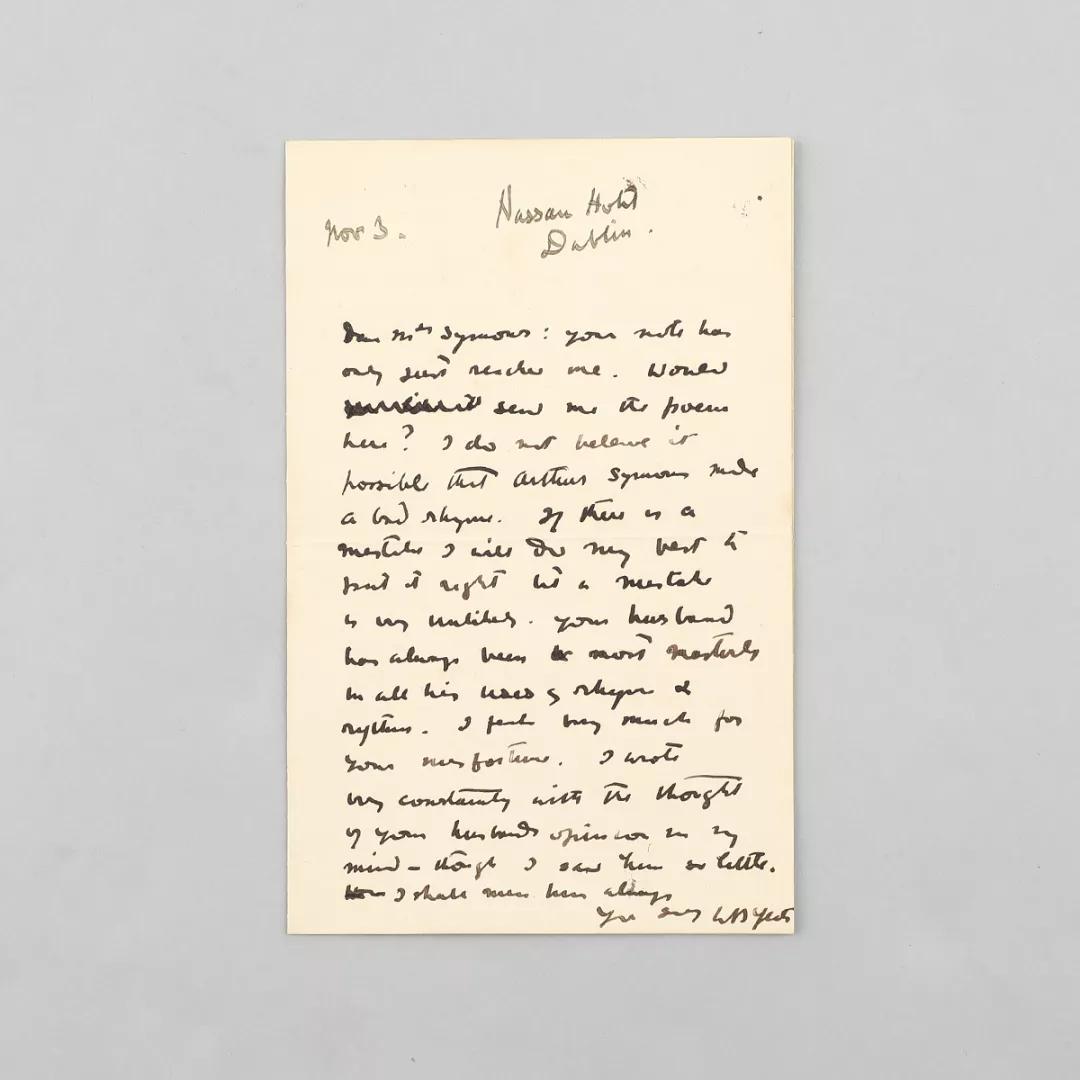 Nov 3.
Nassau Hotel
Dublin.
Dear Mrs Symons: your note has
only just reached me. Would
send me the poem
here? I do not beleave it
possible that Arthur Symons made
a bad rhyme. If there is a
mistake I will do my best to
put it right but a mistake
is very unlikely. your husband
has always been most masterly
in all his uses of rhyme &
rythm. I feel very much for
your misfortune. I wrote
very constantly with the thought
of your husbands opinion in my
mind – though I saw him so little.
I shall miss him always
Yrs WB Yeats